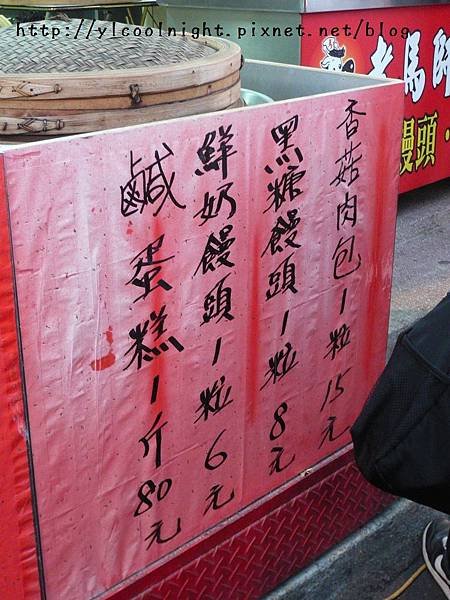 http://ylcoolnight.pixnet.net/blog
老馬師
饅頭.
香菇肉包一粒15元
黑糖饅頭一粒8元
鮮奶饅頭一粒6元
鹹蛋糕一斤80元